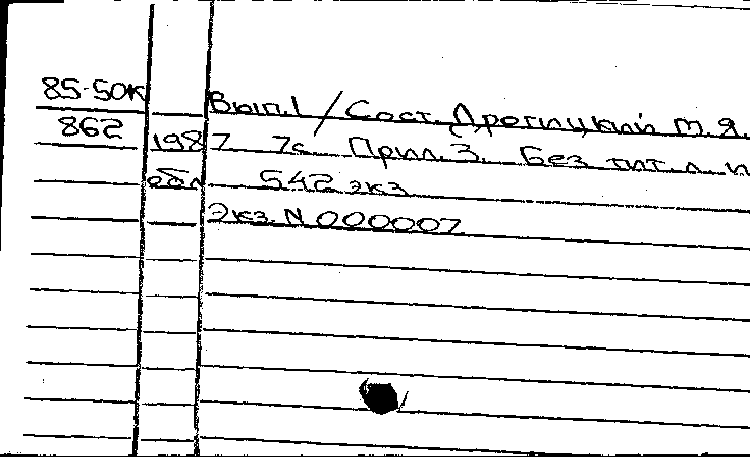 85-50к Вып.1 / Сост. Дрогицкий М.Я.
862 1987 7с Прил. 3. Без тит. л. и
обл 542 экз
Экз. N 000007